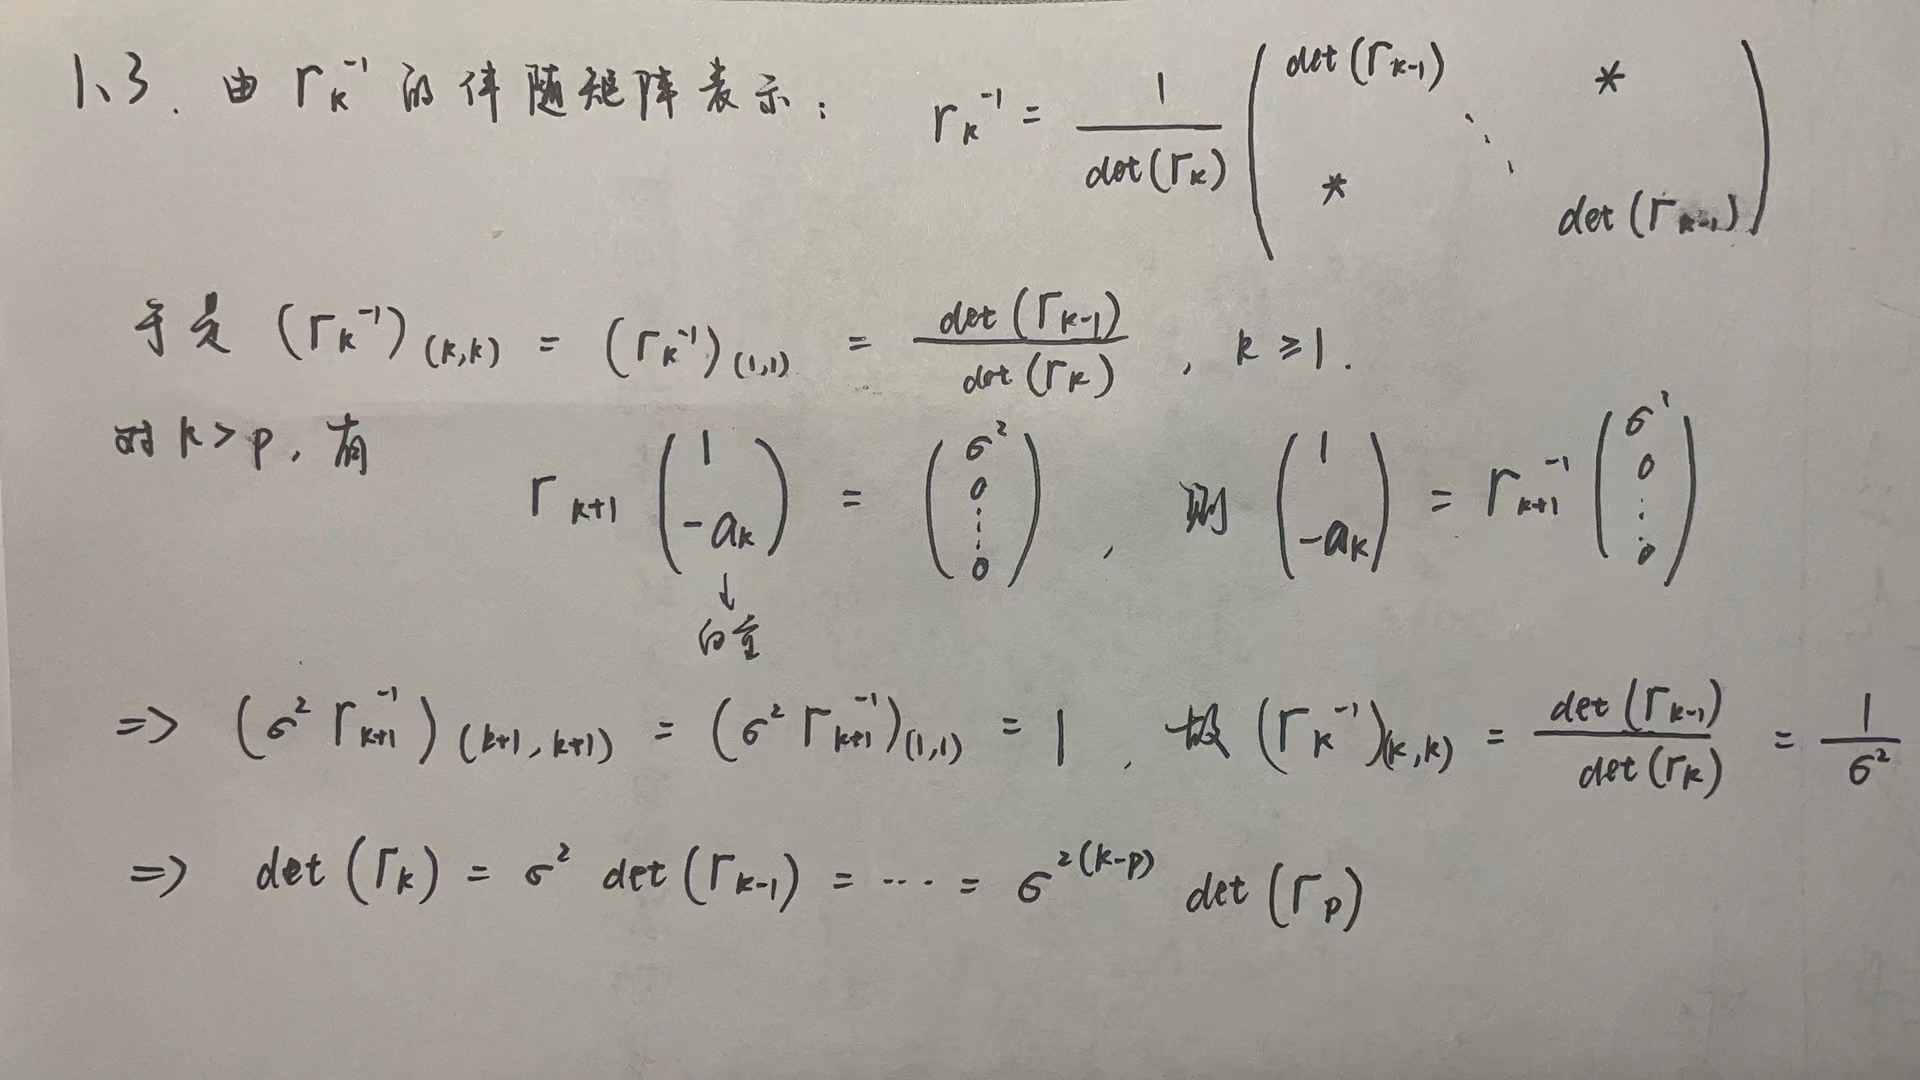 1、3. 由 Γ_k^{-1} 的伴随矩阵表示： Γ_k^{-1} = \frac{1}{det(Γ_k)} \begin{pmatrix} det(Γ_{k-1}) & & * \\ & ⋱ & \\ * & & det(Γ_{k-1}) \end{pmatrix}
于是 (Γ_k^{-1})_{(k,k)} = (Γ_k^{-1})_{(1,1)} = \frac{det(Γ_{k-1})}{det(Γ_k)} , k ≥ 1.
对 k > p, 有 Γ_{k+1} \begin{pmatrix} 1 \\ -a_k \end{pmatrix} = \begin{pmatrix} σ^2 \\ 0 \\ ⋮ \\ 0 \end{pmatrix} , 则 \begin{pmatrix} 1 \\ -a_k \end{pmatrix} = Γ_{k+1}^{-1} \begin{pmatrix} σ^2 \\ 0 \\ ⋮ \\ 0 \end{pmatrix}
↓
向量
=> (σ^2 Γ_{k+1}^{-1})_{(k+1,k+1)} = (σ^2 Γ_{k+1}^{-1})_{(1,1)} = 1 , 故 (Γ_k^{-1})_{(k,k)} = \frac{det(Γ_{k-1})}{det(Γ_k)} = \frac{1}{σ^2}
=> det(Γ_k) = σ^2 det(Γ_{k-1}) = ⋯ = σ^{2(k-p)} det(Γ_p)